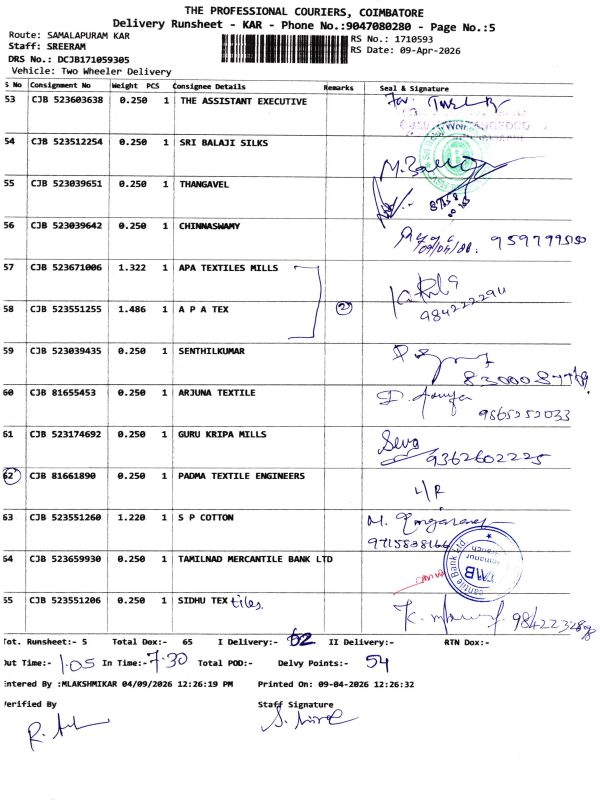 THE PROFESSIONAL COURIERS, COIMBATORE
Delivery Runsheet - KAR - Phone No.:9047080280 - Page No.:5
Route: SAMALAPURAM KAR
RS No.: 1710593
Staff: SREERAM
RS Date: 09-Apr-2026
DRS No.: DCJB171059305
Vehicle: Two Wheeler Delivery
S No Consignment No Weight PCS Consignee Details Remarks Seal & Signature
53 CJB 523603638 0.250 1 THE ASSISTANT EXECUTIVE
54 CJB 523512254 0.250 1 SRI BALAJI SILKS
55 CJB 523039651 0.250 1 THANGAVEL
56 CJB 523039642 0.250 1 CHINNASWAMY
57 CJB 523671006 1.322 1 APA TEXTILES MILLS
58 CJB 523551255 1.486 1 A P A TEX 2
984222294
59 CJB 523039435 0.250 1 SENTHILKUMAR
60 CJB 81655453 0.250 1 ARJUNA TEXTILE
9865252033
61 CJB 523174692 0.250 1 GURU KRIPA MILLS Seva
9362602225
62 CJB 81661890 0.250 1 PADMA TEXTILE ENGINEERS
L/R
63 CJB 523551260 1.220 1 S P COTTON
9715838166
64 CJB 523659930 0.250 1 TAMILNAD MERCANTILE BANK LTD TMB
65 CJB 523551206 0.250 1 SIDHU TEX tiles.
Tot. Runsheet:- 5 Total Dox:- 65 I Delivery:- 62 II Delivery:- RTN Dox:-
Out Time:- 1.05 In Time:- 7.30 Total POD:- Delvy Points:- 54
Entered By :MLAKSHMIKAR 04/09/2026 12:26:19 PM Printed On: 09-04-2026 12:26:32
Verified By Staff Signature